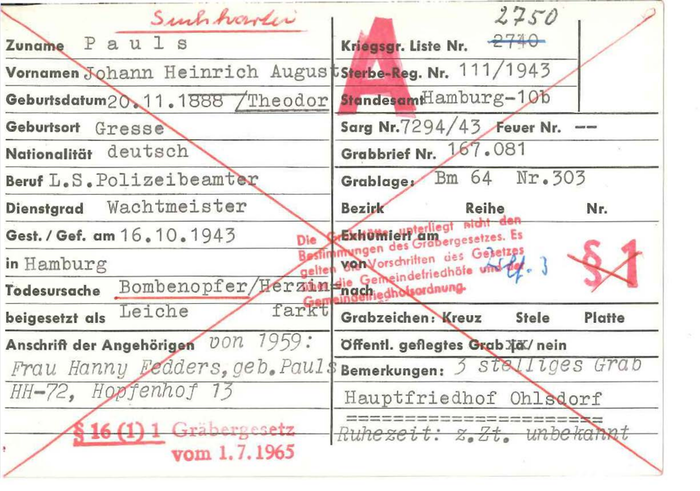 Suchkartei
2750
Zuname Pauls
Kriegsgr. Liste Nr. 2740
A
Vornamen Johann Heinrich August
Sterbe-Reg. Nr. 111/1943
Geburtsdatum 20.11.1888 /Theodor
Standesamt Hamburg-10b
Geburtsort Gresse
Sarg Nr. 7294/43 Feuer Nr. --
Nationalität deutsch
Grabbrief Nr. 167.081
Beruf L.S.Polizeibeamter
Grablage: Bm 64 Nr.303
Dienstgrad Wachtmeister
Bezirk Reihe Nr.
Gest. / Gef. am 16.10.1943
Exhumiert am
in Hamburg
von
Todesursache Bombenopfer/Herzin=
nach
beigesetzt als Leiche farkt
Grabzeichen: Kreuz Stele Platte
Die Grabstätte unterliegt nicht den
Bestimmungen des Gräbergesetzes. Es
gelten die Vorschriften des Gesetzes
über die Gemeindefriedhöfe und der
Gemeindefriedhofsordnung.
§ 1
Anschrift der Angehörigen von 1959:
Öffentl. gepflegtes Grab ja / nein
Frau Hanny Fedders, geb. Pauls
HH-72, Hopfenhof 13
Bemerkungen: 3 stelliges Grab
Hauptfriedhof Ohlsdorf
=====================
Ruhezeit: z.Zt. unbekannt
§ 16 (1) 1 Gräbergesetz
vom 1.7.1965